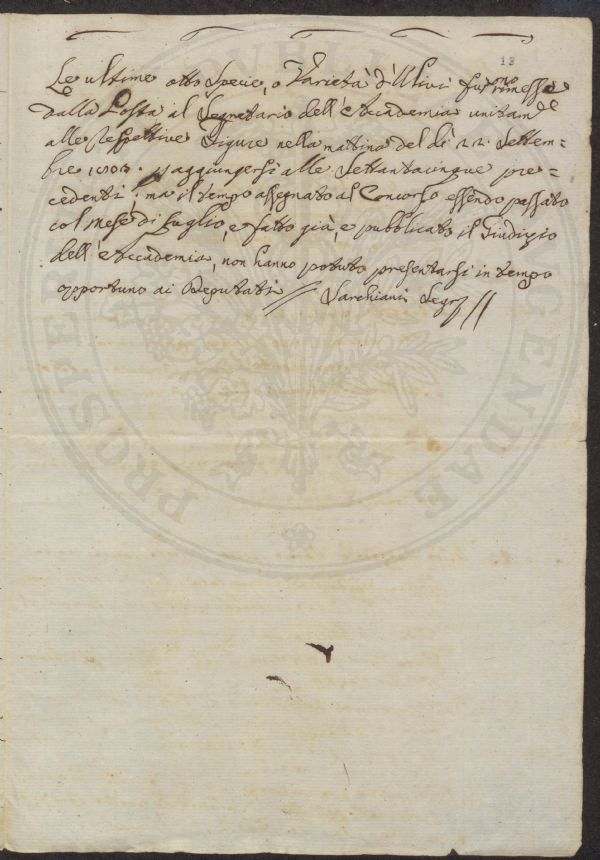 18
Le ultime otto Specie, o Varietà d'Ulivi furono rimesse
dalla Posta al Segretario dell'Accademia unitam.de
alle respettive Figure nella mattina del dì 22. Settem=
bre 1803. p aggiungersi alle Settantacinque pre=
cedenti; ma il tempo assegnato al Concorso essendo passato
col mese di Luglio, e fatto già, e pubblicato il Giudizio
dell'Accademia, non hanno potuto presentarsi in tempo
opportuno ai Deputati // Sarchiani Segr //
PROSPER PUBLI AUGENDAE